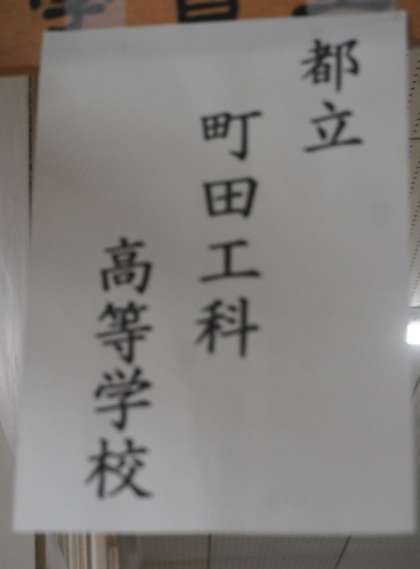 都立
町田工科
高等学校